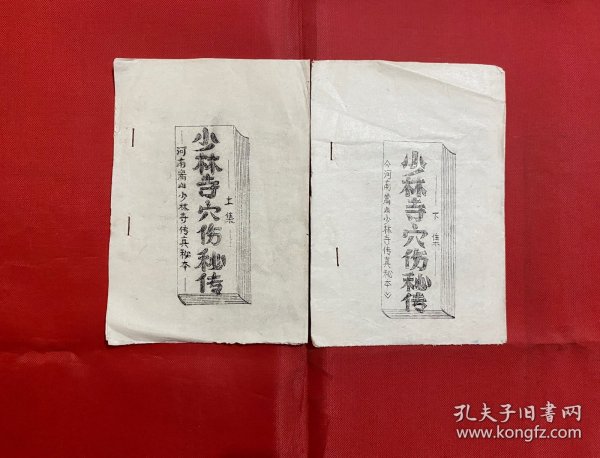 少林寺穴伤秘传
上集
河南嵩山少林寺传真秘本
少林寺穴伤秘传
下集
《河南嵩山少林寺传真秘本》
孔夫子旧书网
www.kongfz.com